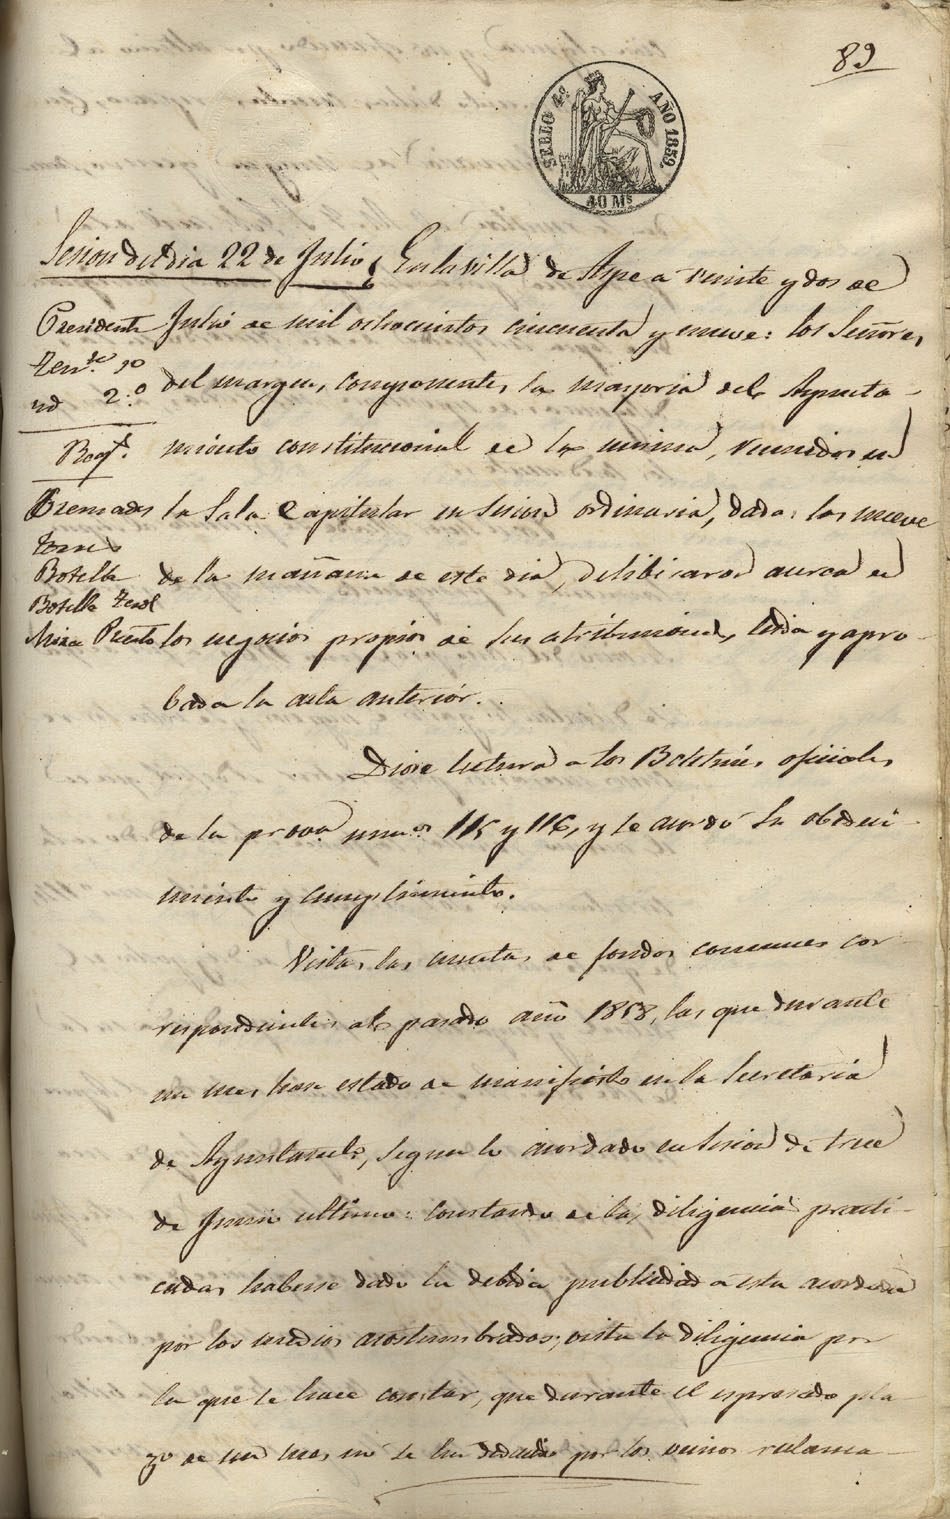 89
SELLO 4º AÑO 1859.
40 Ms
Sesion del dia 22 de Julio
En la villa de Aspe a veinte y dos de
Presidente
Julio de mil ochocientos cincuenta y nueve: los Señores
Tente 1º
id 2.º
del margen, componentes la mayoria del Ayunta-
miento constitucional de la misma, reunidos en
Cremades
la Sala Capitular en sesion ordinaria, dadas las nueve
Torres
Botella
de la mañana de este dia, deliberaron acerca de
Botella
Mira
los negocios propios de sus atribuciones, leida y apro-
bada la acta anterior.
Diose lectura a los Boletines oficiales
de la prova numos 115 y 116, y se acordó su obedeci-
miento y cumplimiento.
Vistas las cuentas de fondos comunes cor-
respondientes al pasado año 1858, las que durante
un mes han estado de manifiesto en la Secretaria
de Ayuntamto, segun lo acordado en sesion de trece
de Junio ultimo: constando de las diligencias practi-
cadas haberse dado la debida publicidad a esta
por los medios acostumbrados; vista la diligencia por
la que se hace constar, que durante el espresado pla-
zo de un mes no se ha por los vecinos reclama-